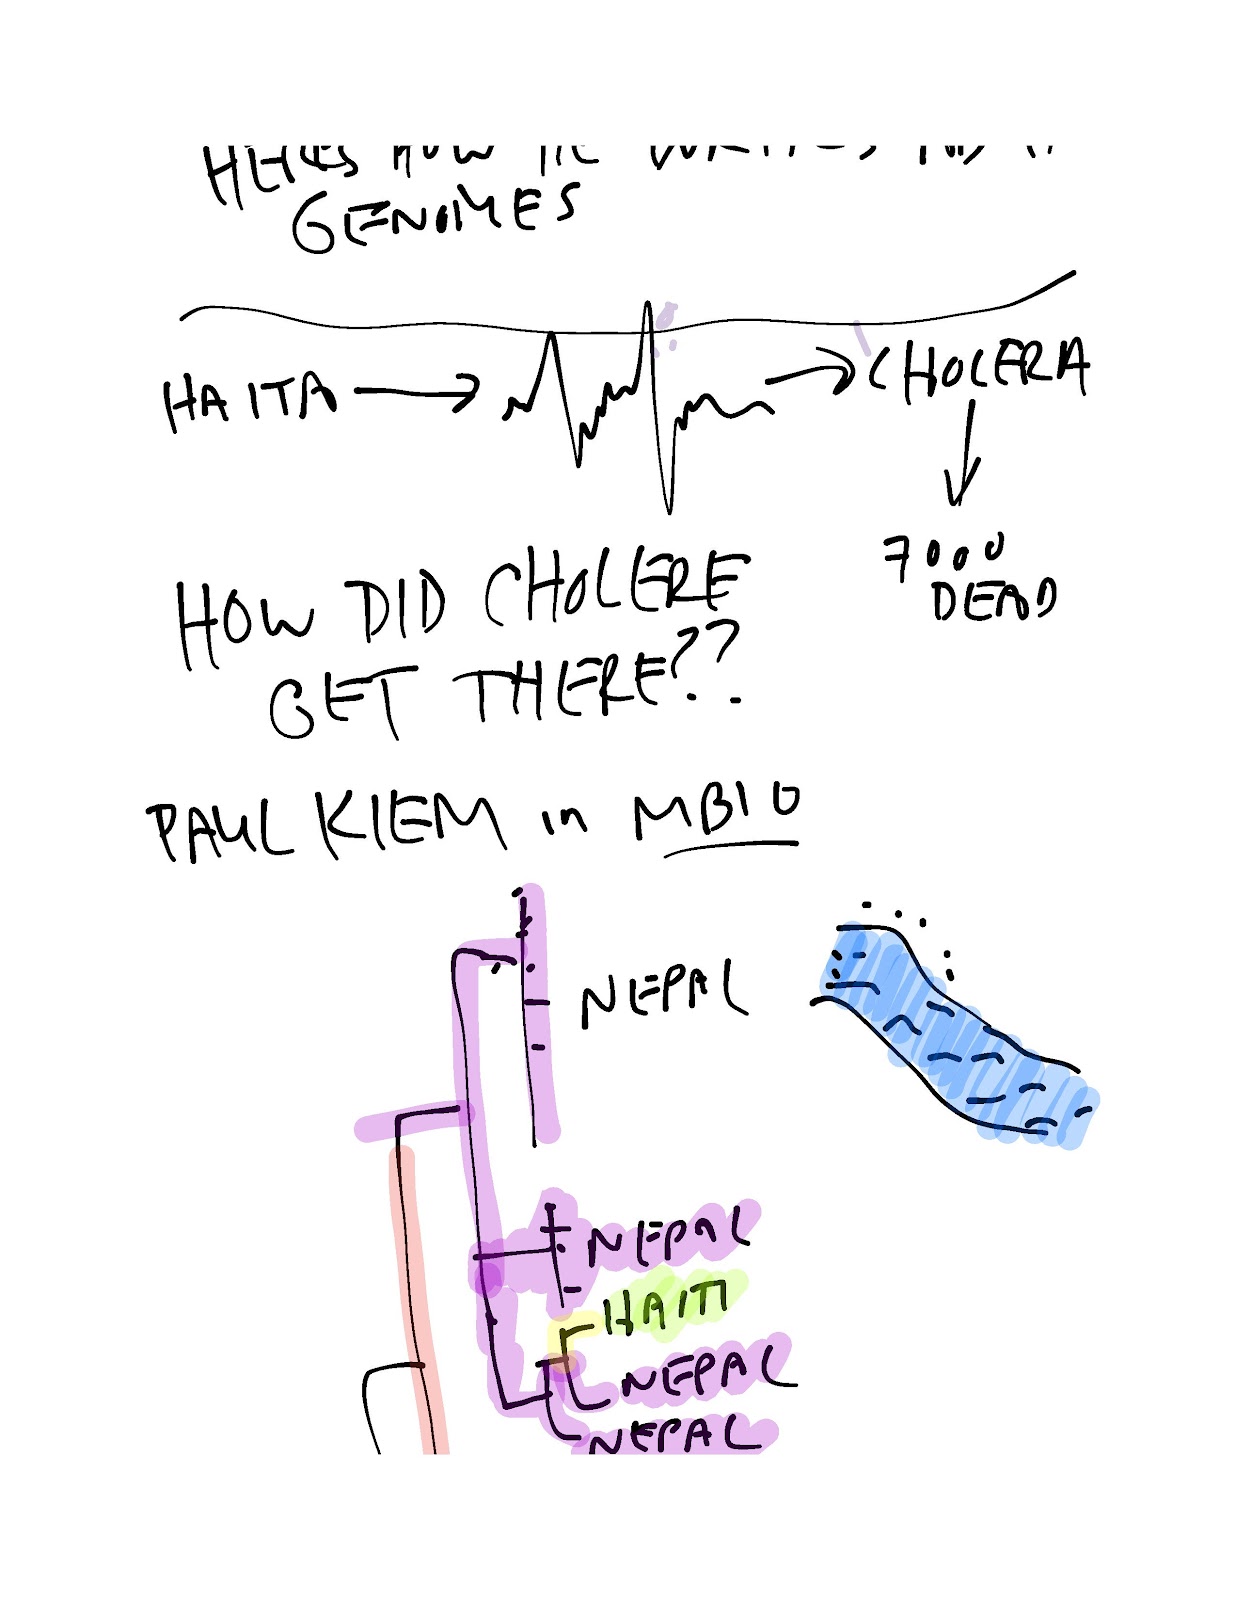 HOW
GENOMES
HAITA → → CHOLERA
↓
7000
DEAD
HOW DID CHOLERE
GET THERE??
PAUL KIEM in MBIO
NEPAL
NEPAL
HAITI
NEPAL
NEPAL